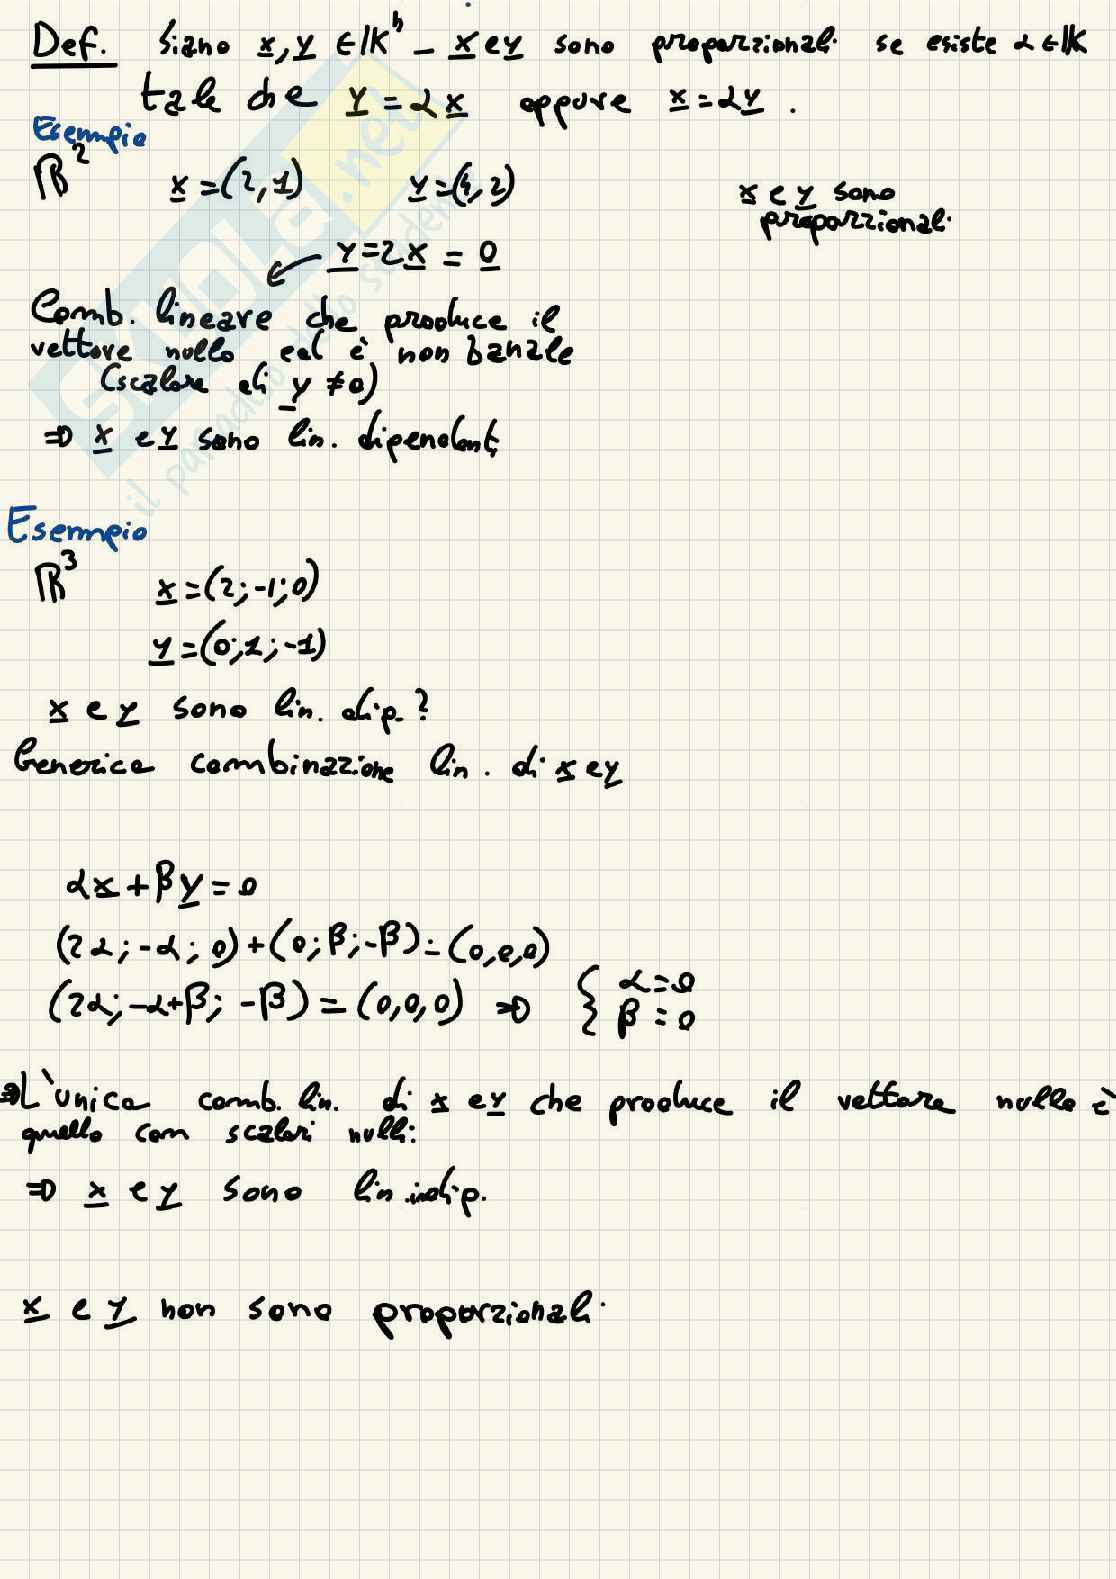 Def. Siano x, y ∈ K^n - x e y sono proporzionali se esiste α ∈ K
tale che y = α x oppure x = α y .
Esempio
R^2 x = (2, 1) y = (4, 2) x e y sono
proporzionali
y = 2 x = 0
Comb. lineare che produce il
vettore nullo ed è non banale
(scalare di y ≠ 0)
⇒ x e y sono lin. dipendenti
Esempio
R^3 x = (2; -1; 0)
y = (0; 1; -1)
x e y sono lin. dip. ?
Generica combinazione lin. di x e y
αx + βy = 0
(2α; -α; 0) + (0; β; -β) = (0, 0, 0)
(2α; -α+β; -β) = (0, 0, 0) ⇒ { α = 0
β = 0
⇒ L'unica comb. lin. di x e y che produce il vettore nullo è
quello con scalari nulli:
⇒ x e y sono lin. indip.
x e y non sono proporzionali
SKUOLa.net